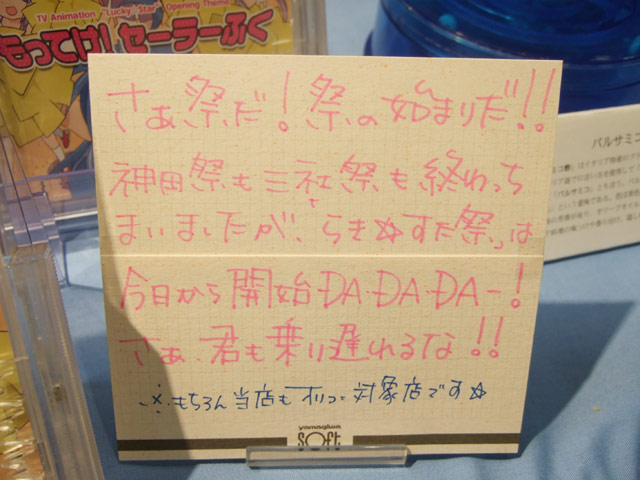 TV Animation "Lucky☆Star" Opening Theme
もってけ!セーラーふく
さぁ祭だ!祭の始まりだ!!
神田祭も三社祭も終わっち
まいましたが、らき☆すた祭っは
今日から開始DA・DA・DAー!
さぁ、君も乗り遅れるな!!
※もちろん当店もオリコン対象店です☆
yamagiwa
soft
バルサミコ